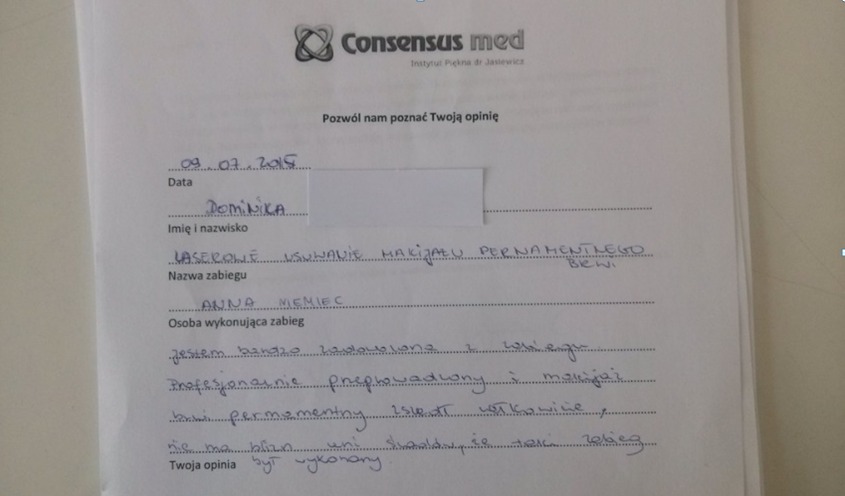 Consensus med
Instytut Piękna dr Jasiewicz
Pozwól nam poznać Twoją opinię
09.07.2015
Data
DOMINIKA
Imię i nazwisko
LASEROWE USUWANIE MAKIJAŻU PERNAMENTNEGO
BRWI
Nazwa zabiegu
ANNA NIEMIEC
Osoba wykonująca zabieg
Jestem bardzo zadowolona z zabiegu
Profesjonalnie przeprowadzony i makijaż
brwi permamentny zszedł całkowicie,
nie ma blizn ani śladów, że taki zabieg
Twoja opinia był wykonany.